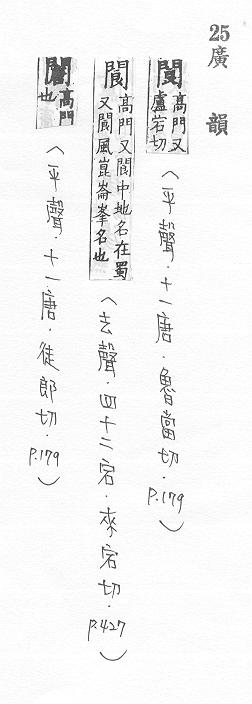 25廣韻
閬 高門又盧宕切
〈平聲．十一唐．魯當切．P.179〉
閬 高門又閬中地名在蜀又閬風崑崙峯名也
〈去聲．四十二宕．來宕切．P.427〉
高門也
〈平聲．十一唐．徒郎切．P.179〉